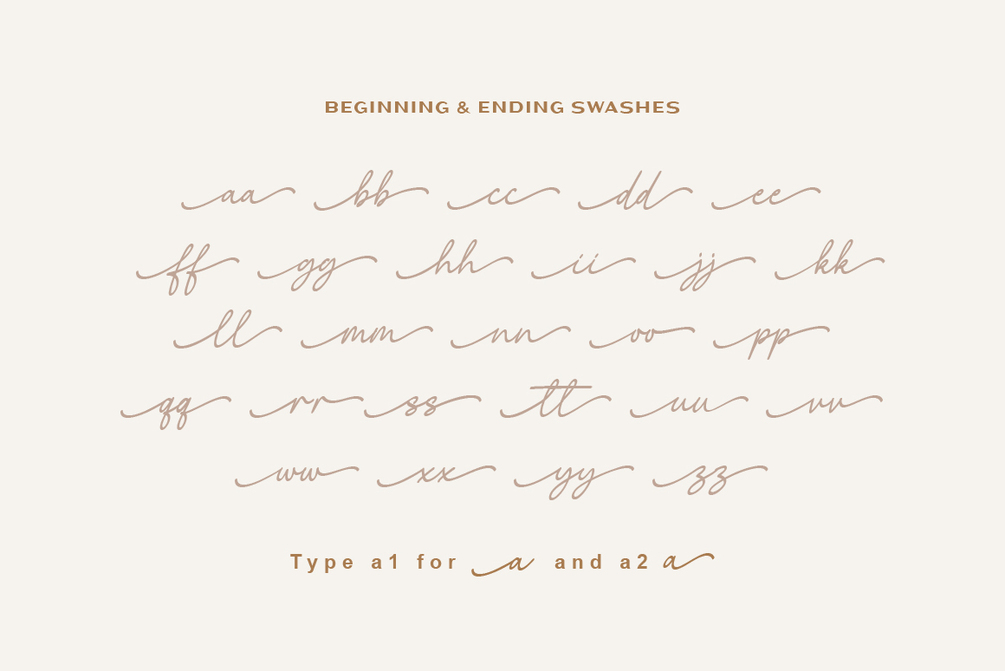 BEGINNING & ENDING SWASHES
aa bb cc dd ee
ff gg hh ii jj kk
ll mm nn oo pp
qq rr ss tt uu vv
ww xx yy zz
Type a1 for a and a2 a